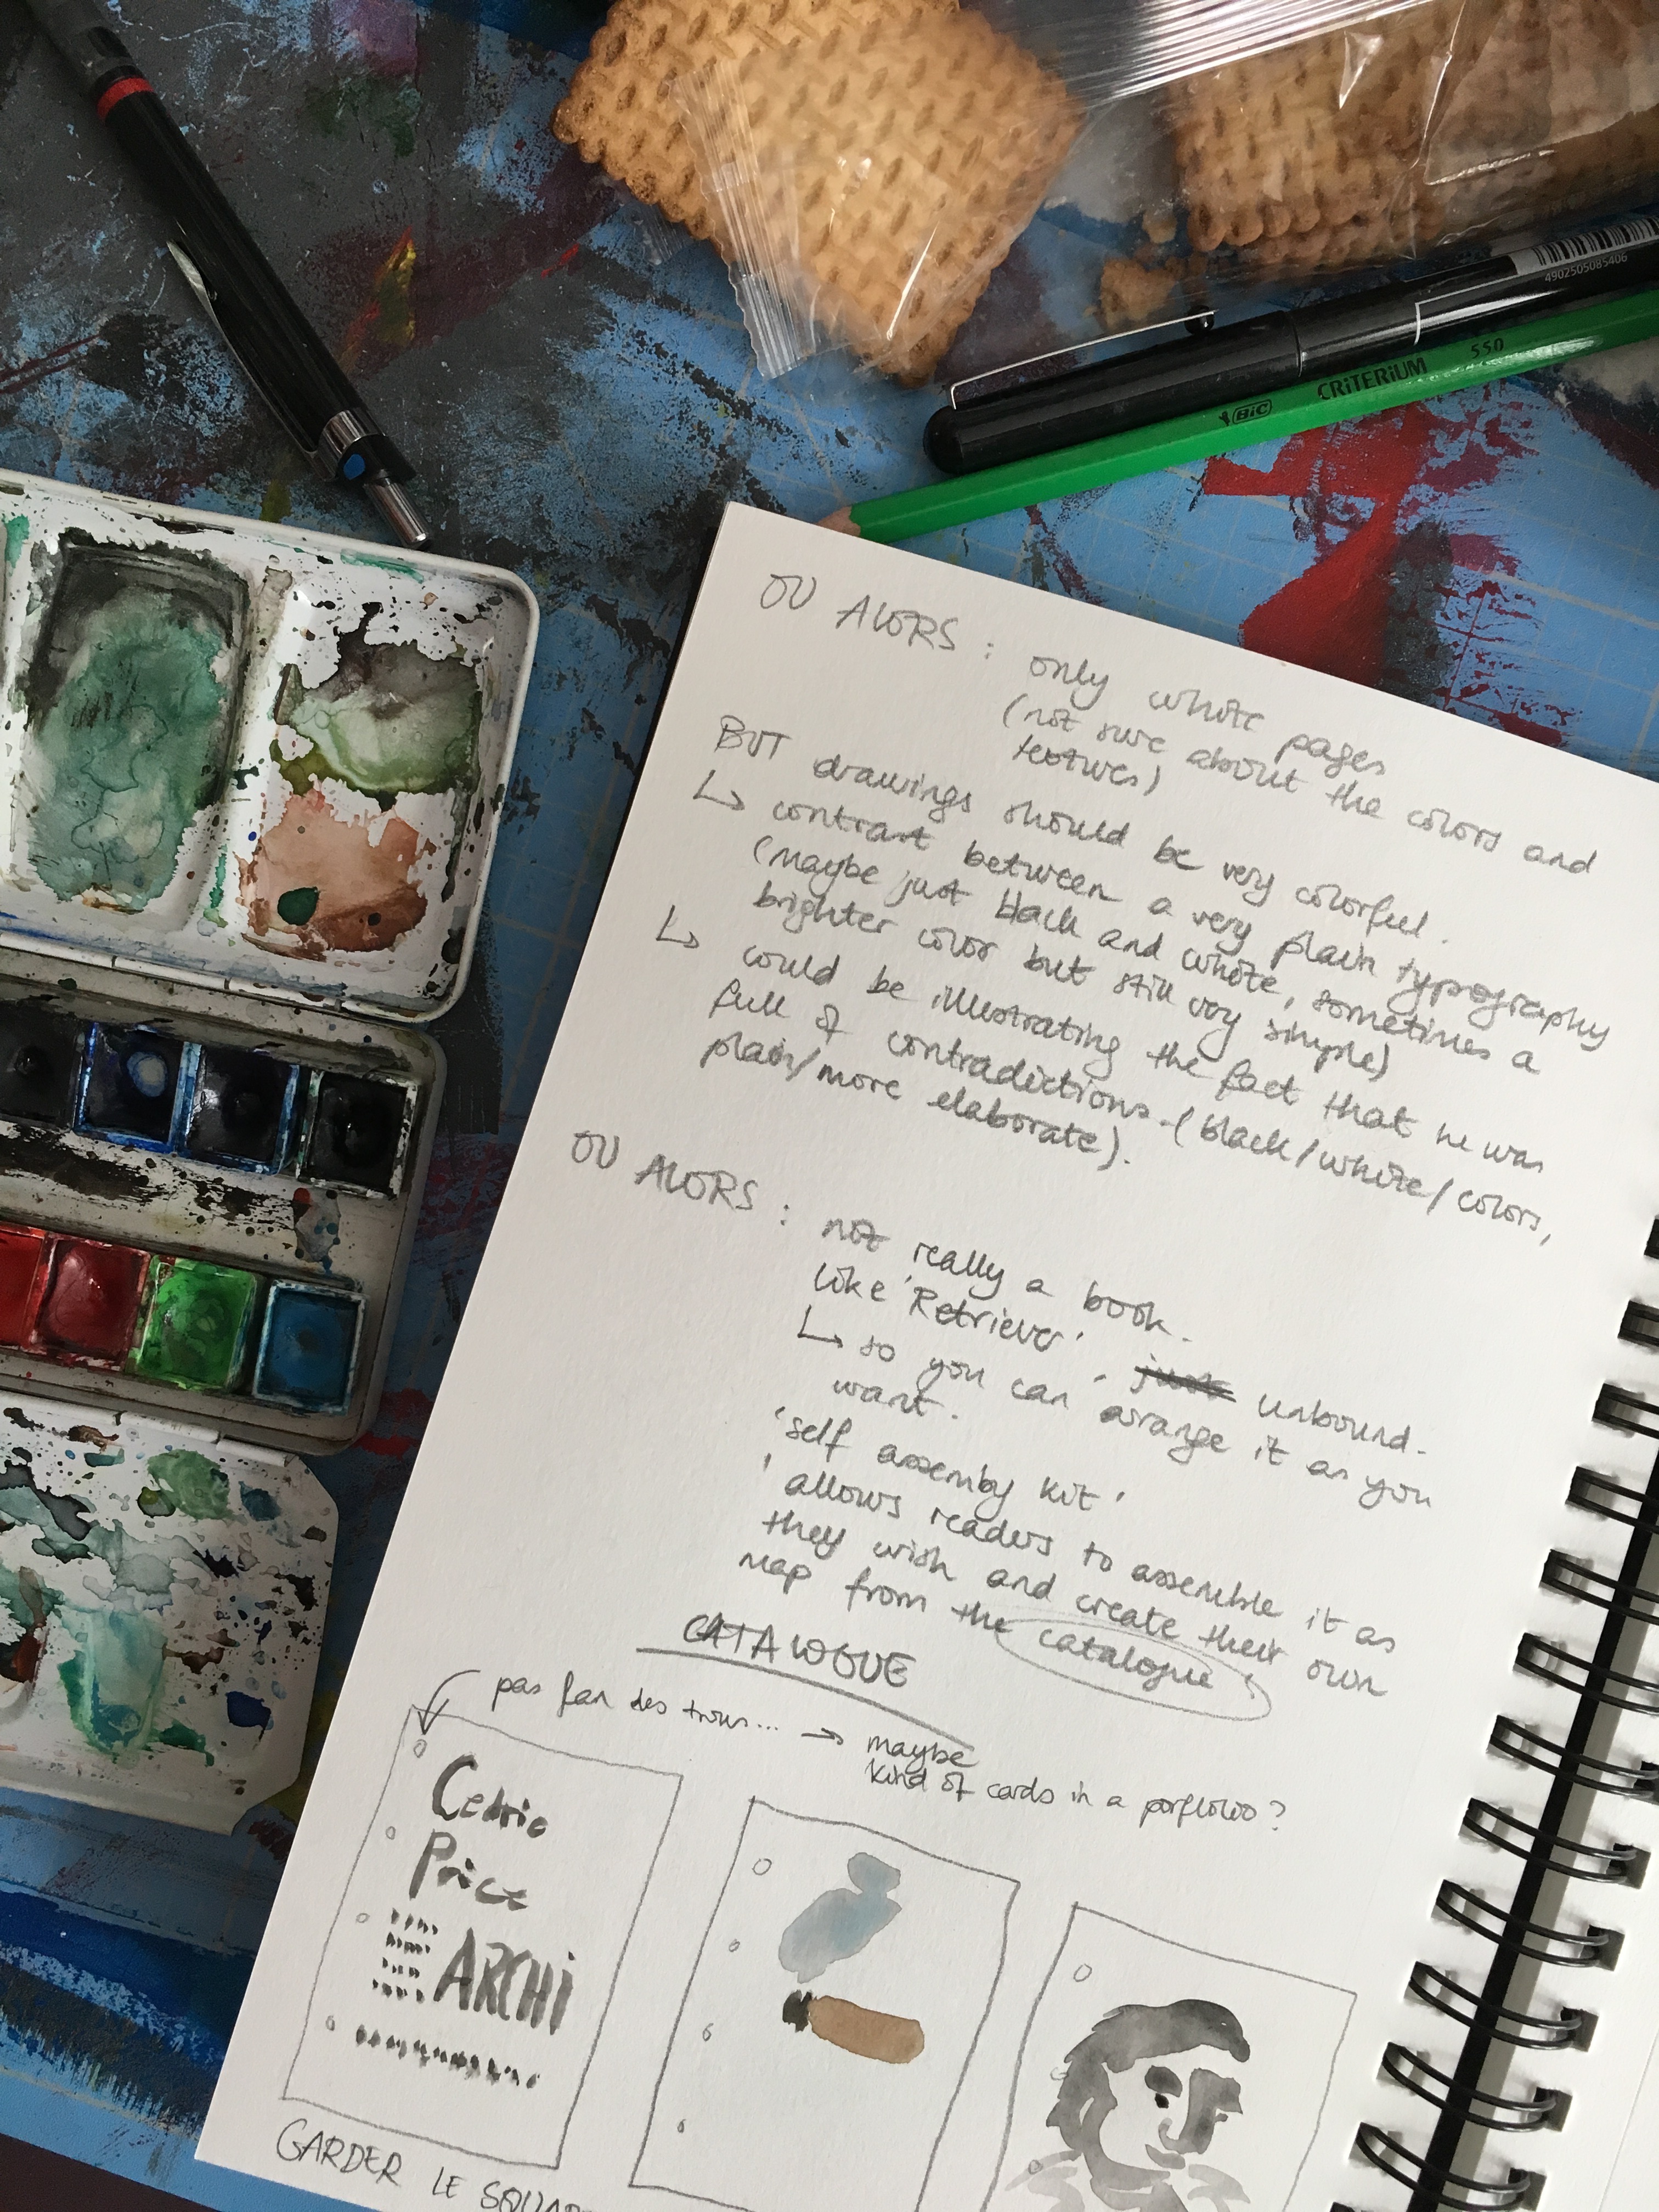 4902505085406
BIC CRITERIUM 550
OU ALORS : only white pages
(not sure about the colors and
textures)
BUT drawings should be very colorful.
↳ contrast between a very plain typography
(maybe just black and white, sometimes a
brighter color but still very simple)
↳ could be illustrating the fact that he was
full of contradictions. (black/white/colors,
plain/more elaborate).
OU ALORS : not really a book.
like 'Retriever' - unbound.
↳ so you can arrange it as you
want.
'self assemby kit'
'allows readers to assemble it as
they wish and create their own
map from the catalogue'
CATALOGUE
pas fan des trous... → maybe
kind of cards in a
Cedric
Price
ARCHi
GARDER LE